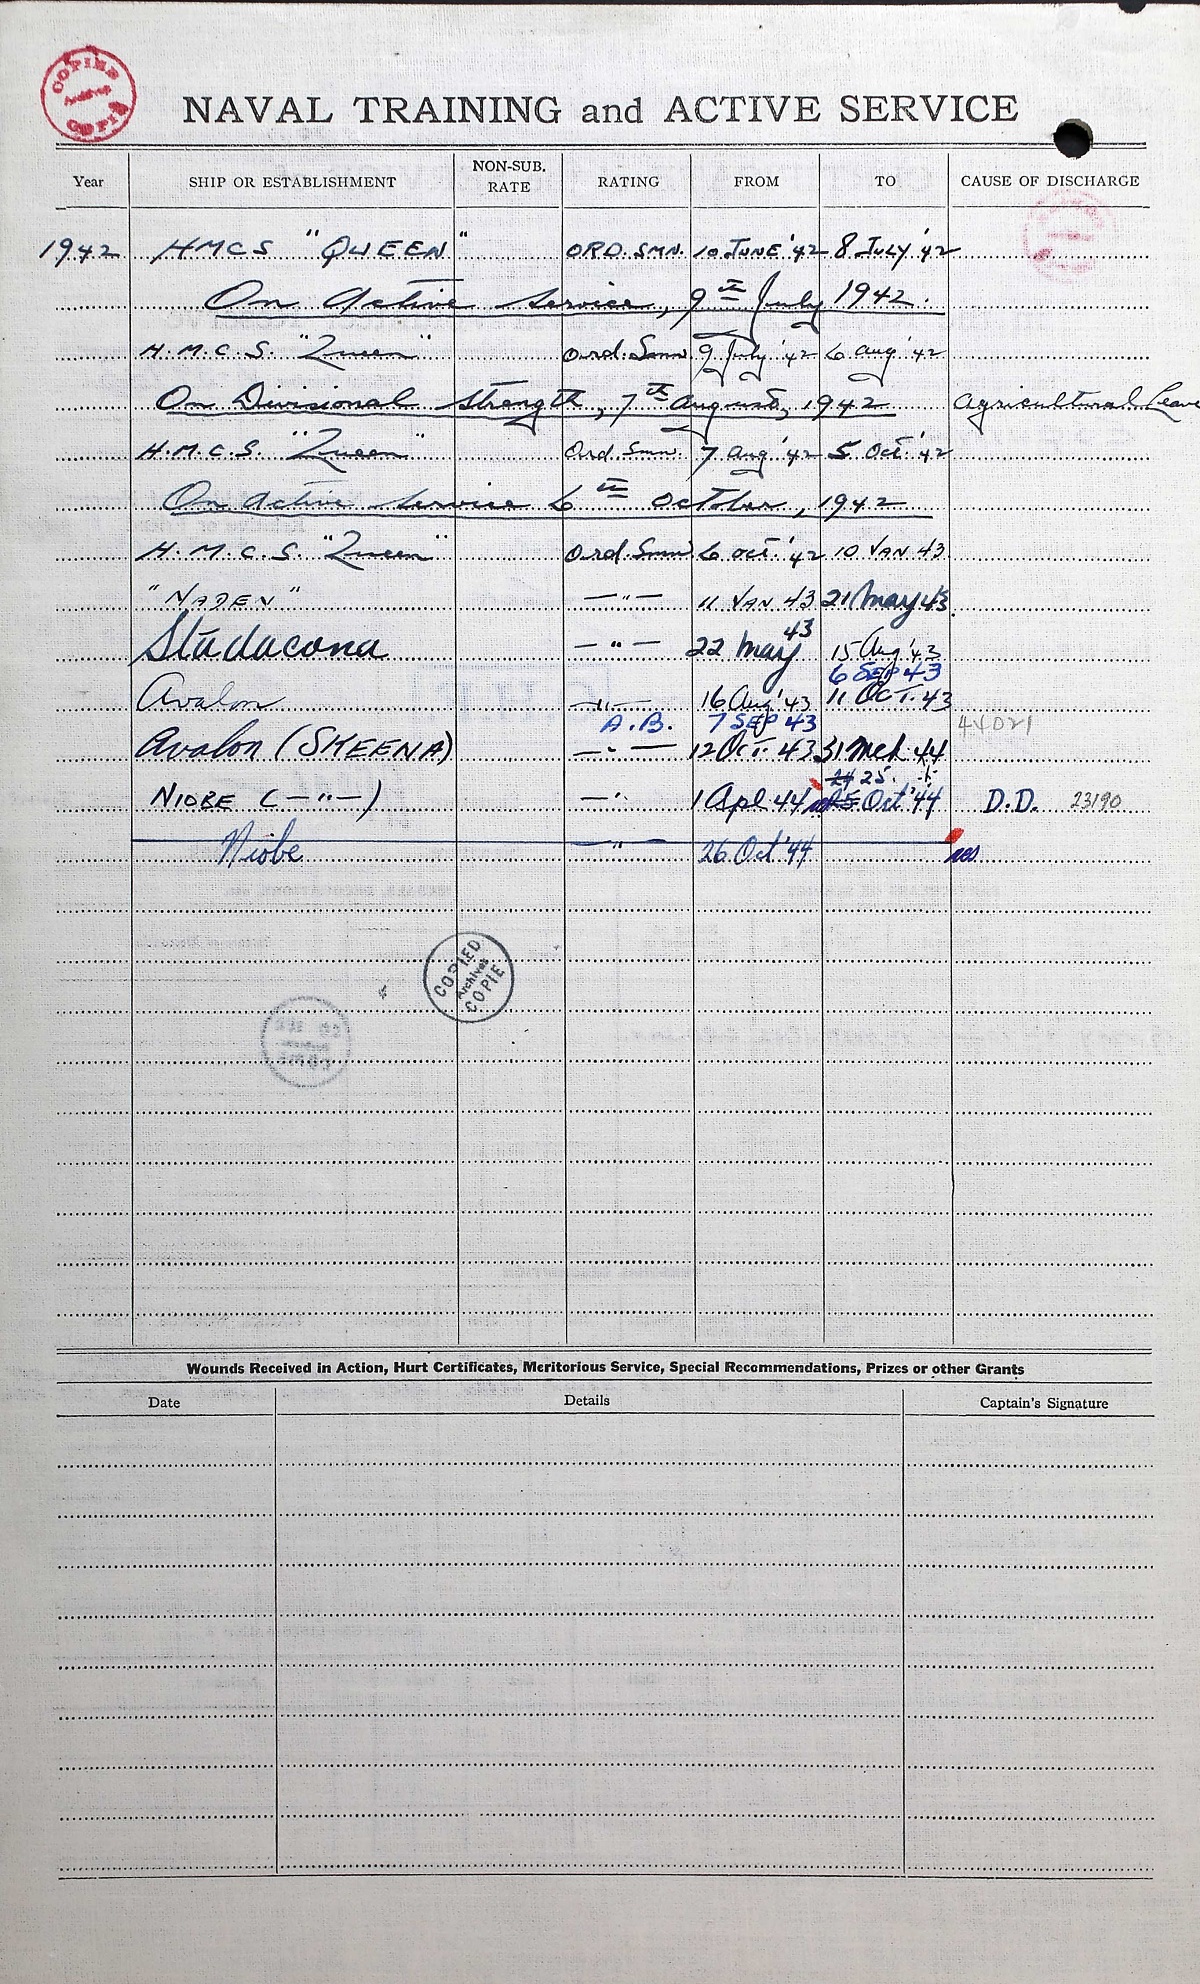 COPIED
COPIE
NAVAL TRAINING and ACTIVE SERVICE
Year SHIP OR ESTABLISHMENT NON-SUB. RATE RATING FROM TO CAUSE OF DISCHARGE
1942 HMCS "QUEEN" ORD. SMN. 10 JUNE '42 8 JULY '42
On Active Service, 9th July 1942.
H.M.C.S. "Queen" Ord. Smn 9 July '42 6 Aug '42
On Divisional Strength, 7th August, 1942 Agricultural Leave
H.M.C.S. "Queen" Ord Smn. 7 Aug '42 5 Oct '42
On Active Service 6th October, 1942
H.M.C.S. "Queen" Ord. Smn 6 Oct. '42 10 JAN 43
"NADEN" —"— 11 JAN 43 21 May 43.
Stadacona —"— 22 May 43 15 Aug '43
6 SEP 43
Avalon —"— 16 Aug '43 11 OCT. 43
A.B. 7 SEP 43 44021
Avalon (SKEENA) —"— 12 OCT. 43 31 Mch 44
24 25.
NIOBE (—"—) —"— 1 Apl 44 Oct '44 D.D. 23190
Niobe —"— 26 Oct '44
COPIED
Archives
COPIE
Wounds Received in Action, Hurt Certificates, Meritorious Service, Special Recommendations, Prizes or other Grants
Date Details Captain's Signature